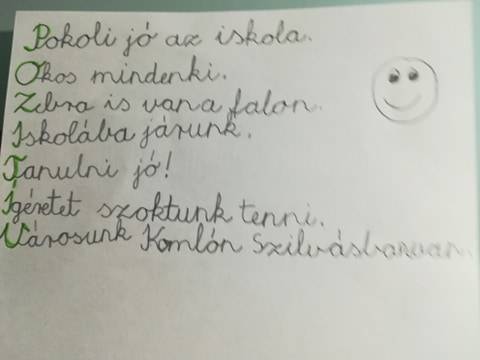 Pokoli jó az iskola.
Okos mindenki.
Zebra is van a falon.
Iskolába járunk.
Tanulni jó!
Ígéretet szoktunk tenni.
Városunk Komlón Szilvásban van.